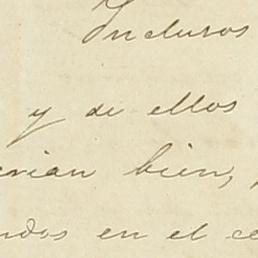 Inclusos
y de ellos
erian bien,
ndos en el ce